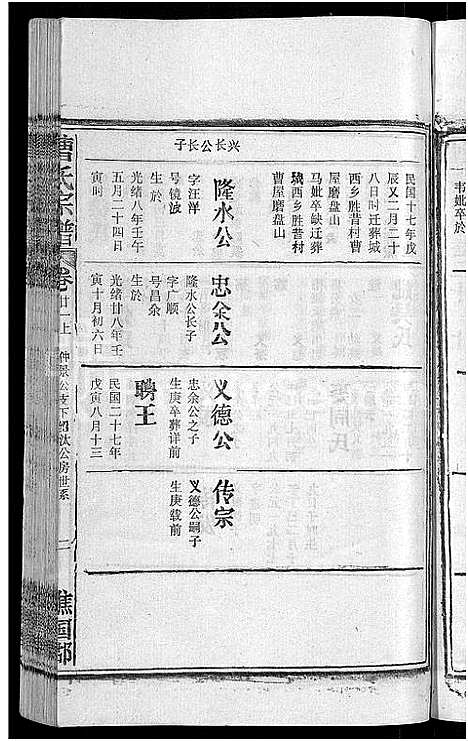 民国十七年戊
辰又二月二十
八日时迁葬城
西乡胜昔村曹
屋磨盘山
马妣卒缺迁葬
城西乡胜昔村
曹屋磨盘山
兴长公长子
隆水公
字汪洋
号镜波
生於
光绪八年壬午
五月二十四日
寅时
忠余公
隆水公长子
字广顺
号昌余
生於
光绪廿八年壬
寅十月初六日
义德公
忠余公之子
生庚卒葬详前
聘王
民国二十七年
戊寅八月十三
传宗
义德公嗣子
生庚载前
曹氏宗谱
卷廿一上
仲景公支下绍汰公房世系
二
谯国郡
韦妣卒於